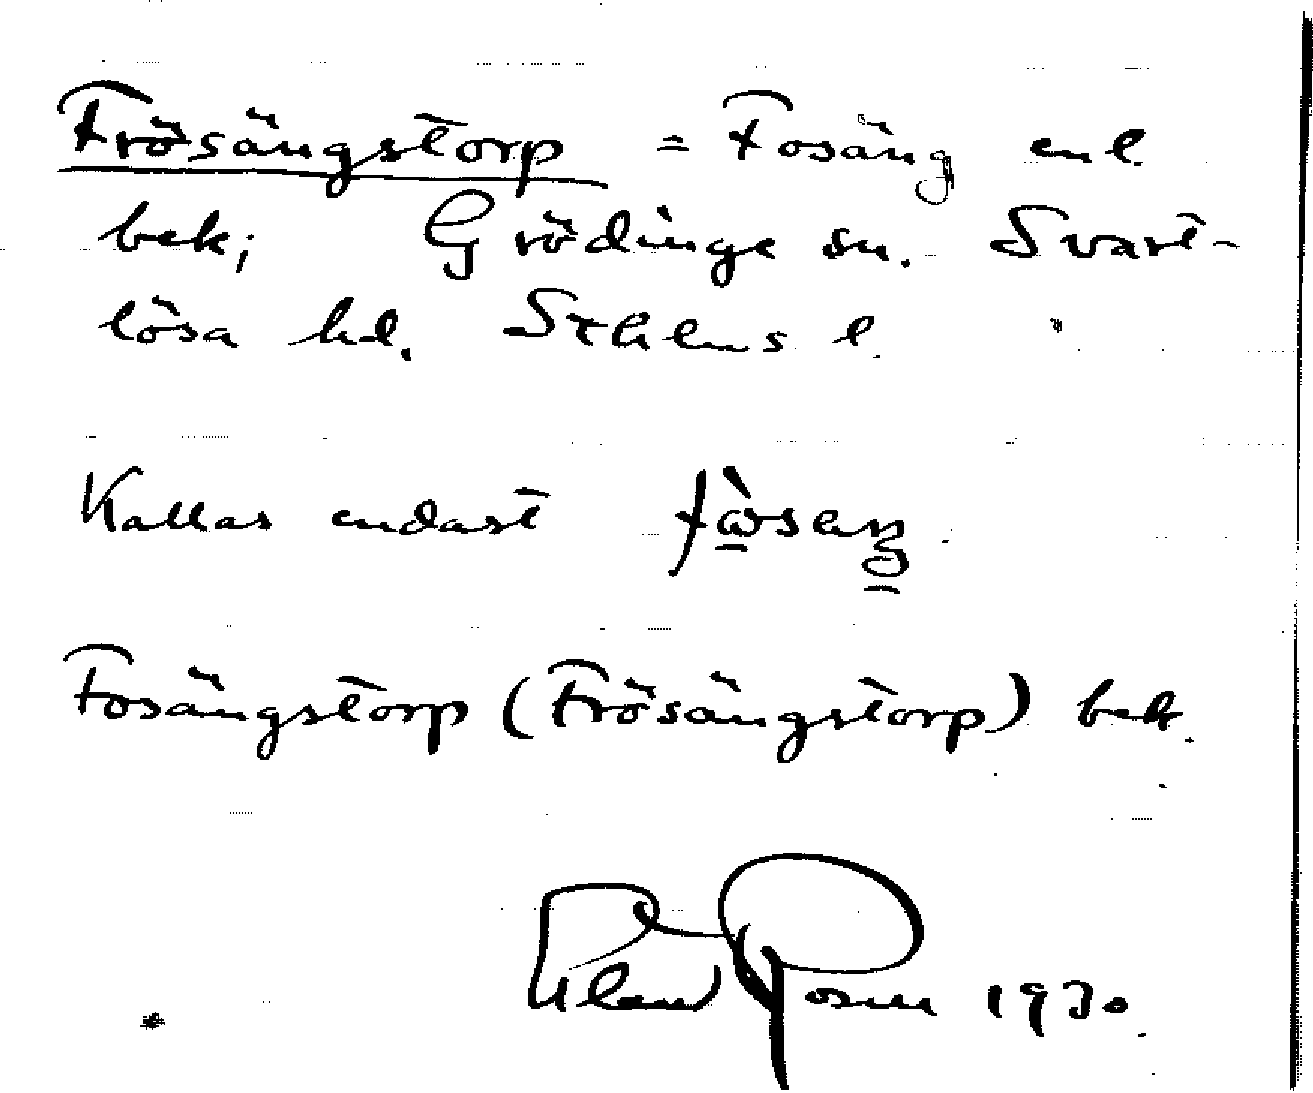 Frösängstorp = Fosäng enl.
bek; Grödinge sn. Svart-
lösa hd. Sthlms l.
Kallas endast
Fosängstorp (Frösängstorp) bek.
1930.